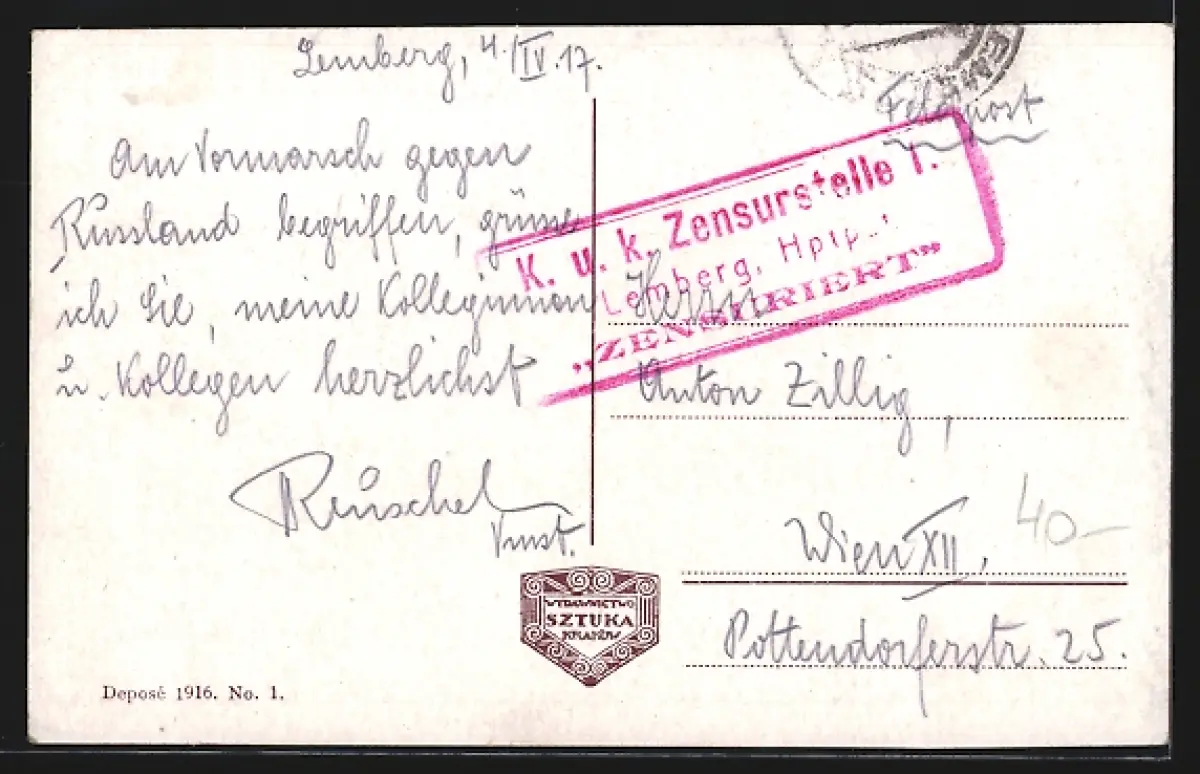 Lemberg, 4./IV. 17.
Am Vormarsch gegen
Russland begriffen, grüsse
ich Sie, meine Kolleginnen
u. Kollegen herzlichst
Reuschel
Feldpost
K. u. k. Zensurstelle I.
Lemberg, Hptp.
„ZENSURIERT”
Herrn
Anton Zillig,
Wien XII.
40-
Pottendorferstr. 25.
WYDAWNICTWO
SZTUKA
KRAKÓW
Deposé 1916. No. 1.